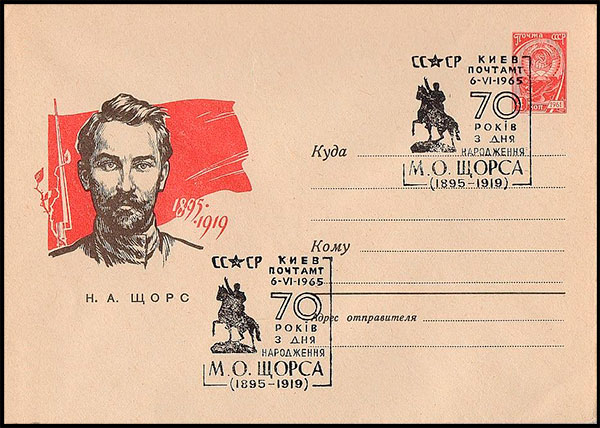 1895-
1919
Н. А. ЩОРС
СС★СР КИЕВ
ПОЧТАМТ
6-VI-1965
70
РОКІВ
З ДНЯ
НАРОДЖЕННЯ
М. О. ЩОРСА
(1895-1919)
ПОЧТА СССР
КОП 1961
Куда
Кому
Адрес отправителя
СС★СР КИЕВ
ПОЧТАМТ
6-VI-1965
70
РОКІВ
З ДНЯ
НАРОДЖЕННЯ
М. О. ЩОРСА
(1895-1919)